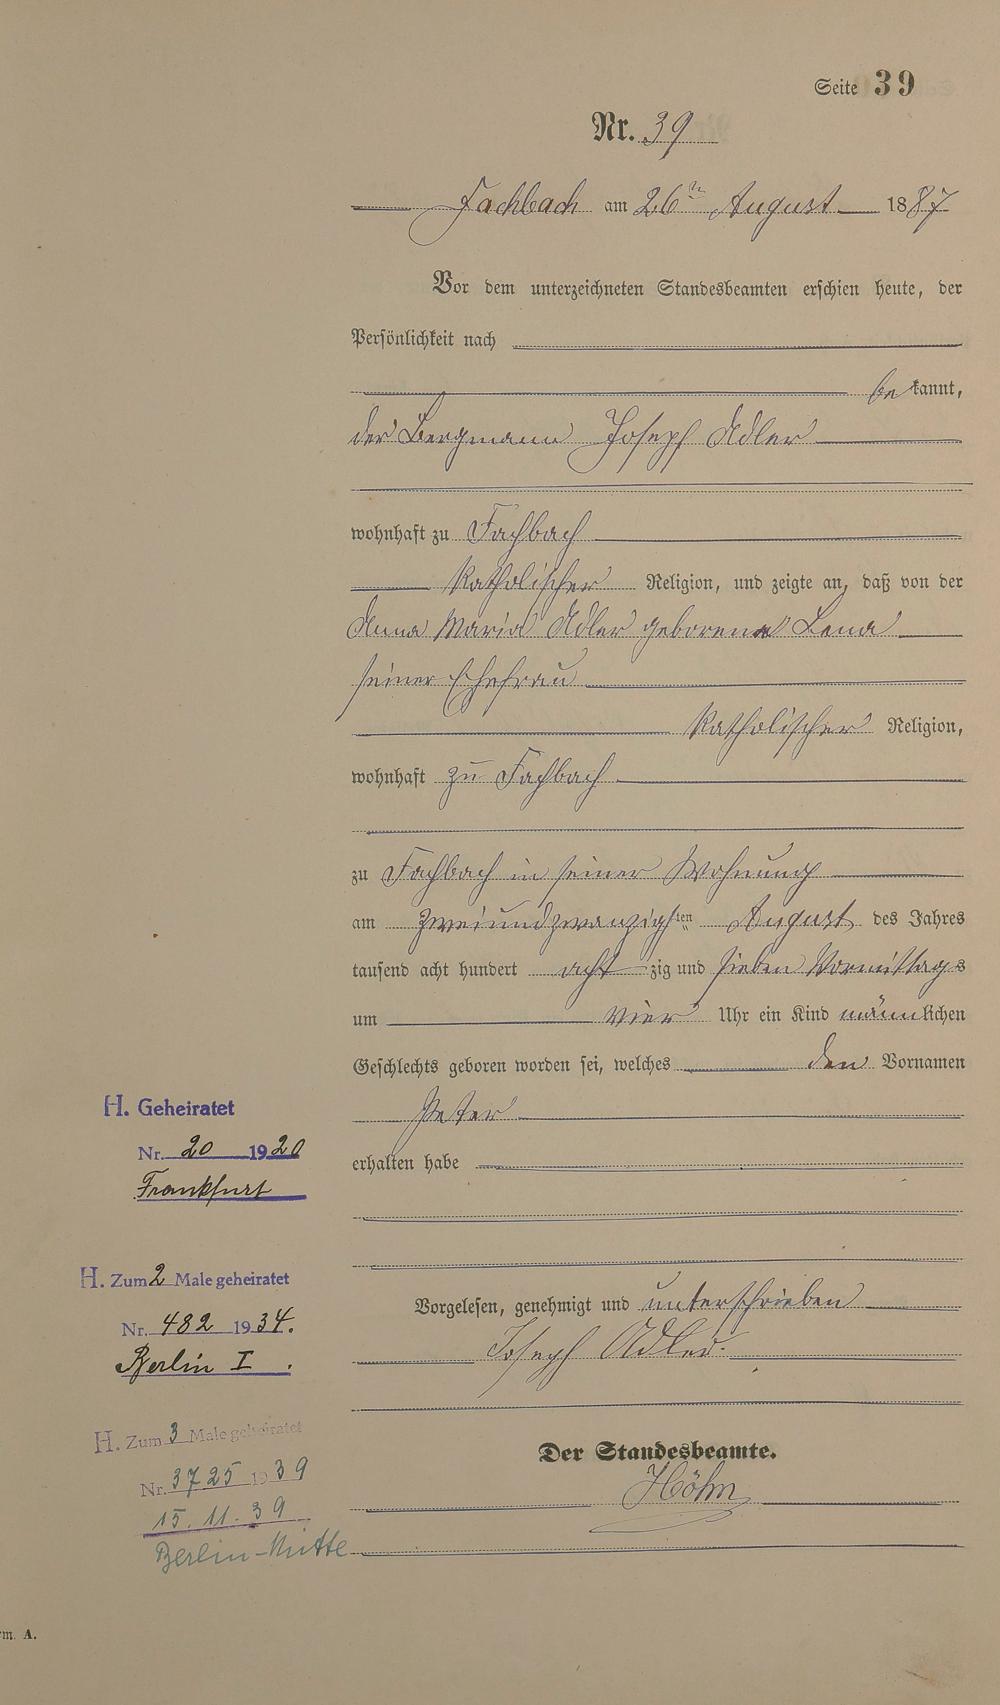 Seite 39
Nr. 39
Fachbach am 26ten August 1887
Vor dem unterzeichneten Standesbeamten erschien heute, der
Persönlichkeit nach
bekannt,
der Bergmann Joseph Adler
wohnhaft zu Fachbach
Katholischer Religion, und zeigte an, daß von der
Anna Maria Adler geborene Lena
seiner Ehefrau
Katholischer Religion,
wohnhaft zu Fachbach
zu Fachbach in seiner Wohnung
am zweiundzwanzigsten August des Jahres
tausend acht hundert acht zig und sieben Vormittags
um vier Uhr ein Kind männlichen
Geschlechts geboren worden sei, welches den Vornamen
Peter
erhalten habe
Vorgelesen, genehmigt und unterschrieben
Joseph Adler.
Der Standesbeamte.
Höhn
H. Geheiratet
Nr. 20 1920
Frankfurt
H. Zum 2 Male geheiratet
Nr. 482 1934.
Berlin I.
H. Zum 3 Male geheiratet
Nr. 3725 1939
15.11.39
Berlin-Mitte
rm. A.